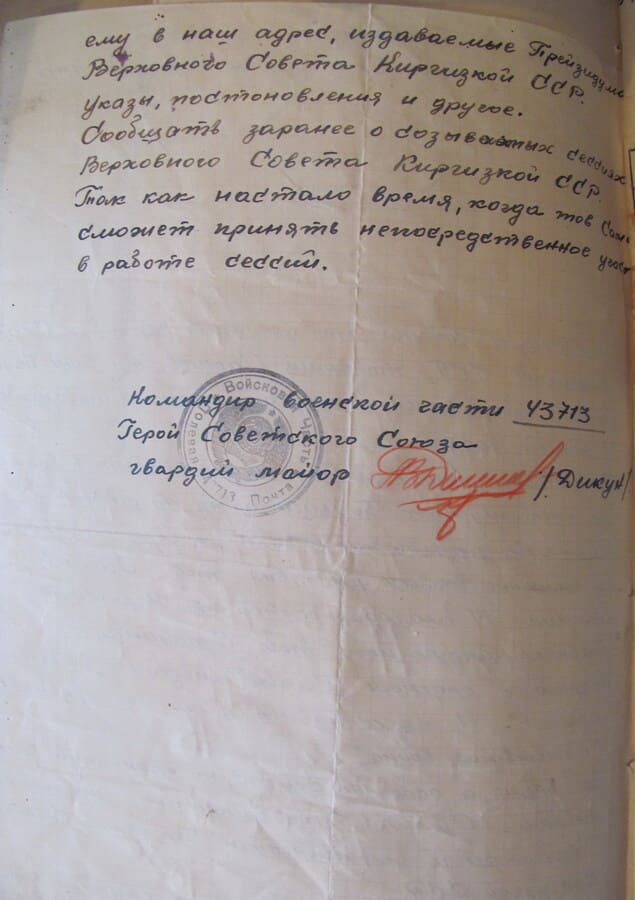 ему в наш адрес, издаваемые Президумо
Верховного Совета Киргизкой ССР.
указы, постоновления и другое.
Сообщать заранее о созываемых сессиях
Верховного Совета Киргизкой ССР.
Так как настало время, когда тов
сможет принять непосредственное участ
в работе сессий.
Командир воснской части 43713
Герой Советского Союза
гвардий майор /Дикун/
Войсковая Часть
Полевая Почта